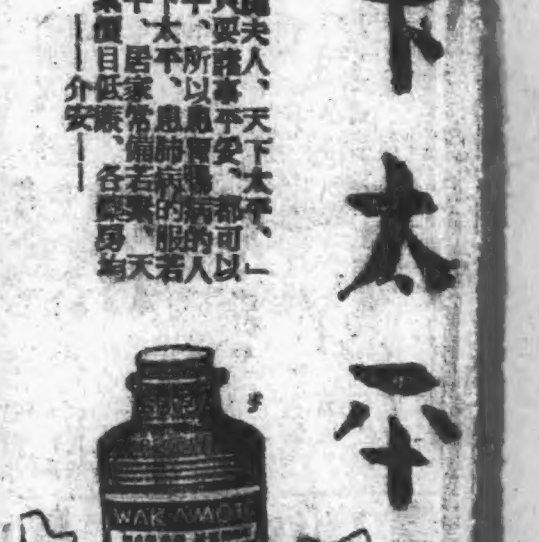 下太平
夫人、天下太平、」
要諸事平妥、都可以
平、所以患胃腸病的人
下太平、患肺病的服若
平、居家常備若素、天
價目低廉、各藥房均
——介安——
WAKAMOTO